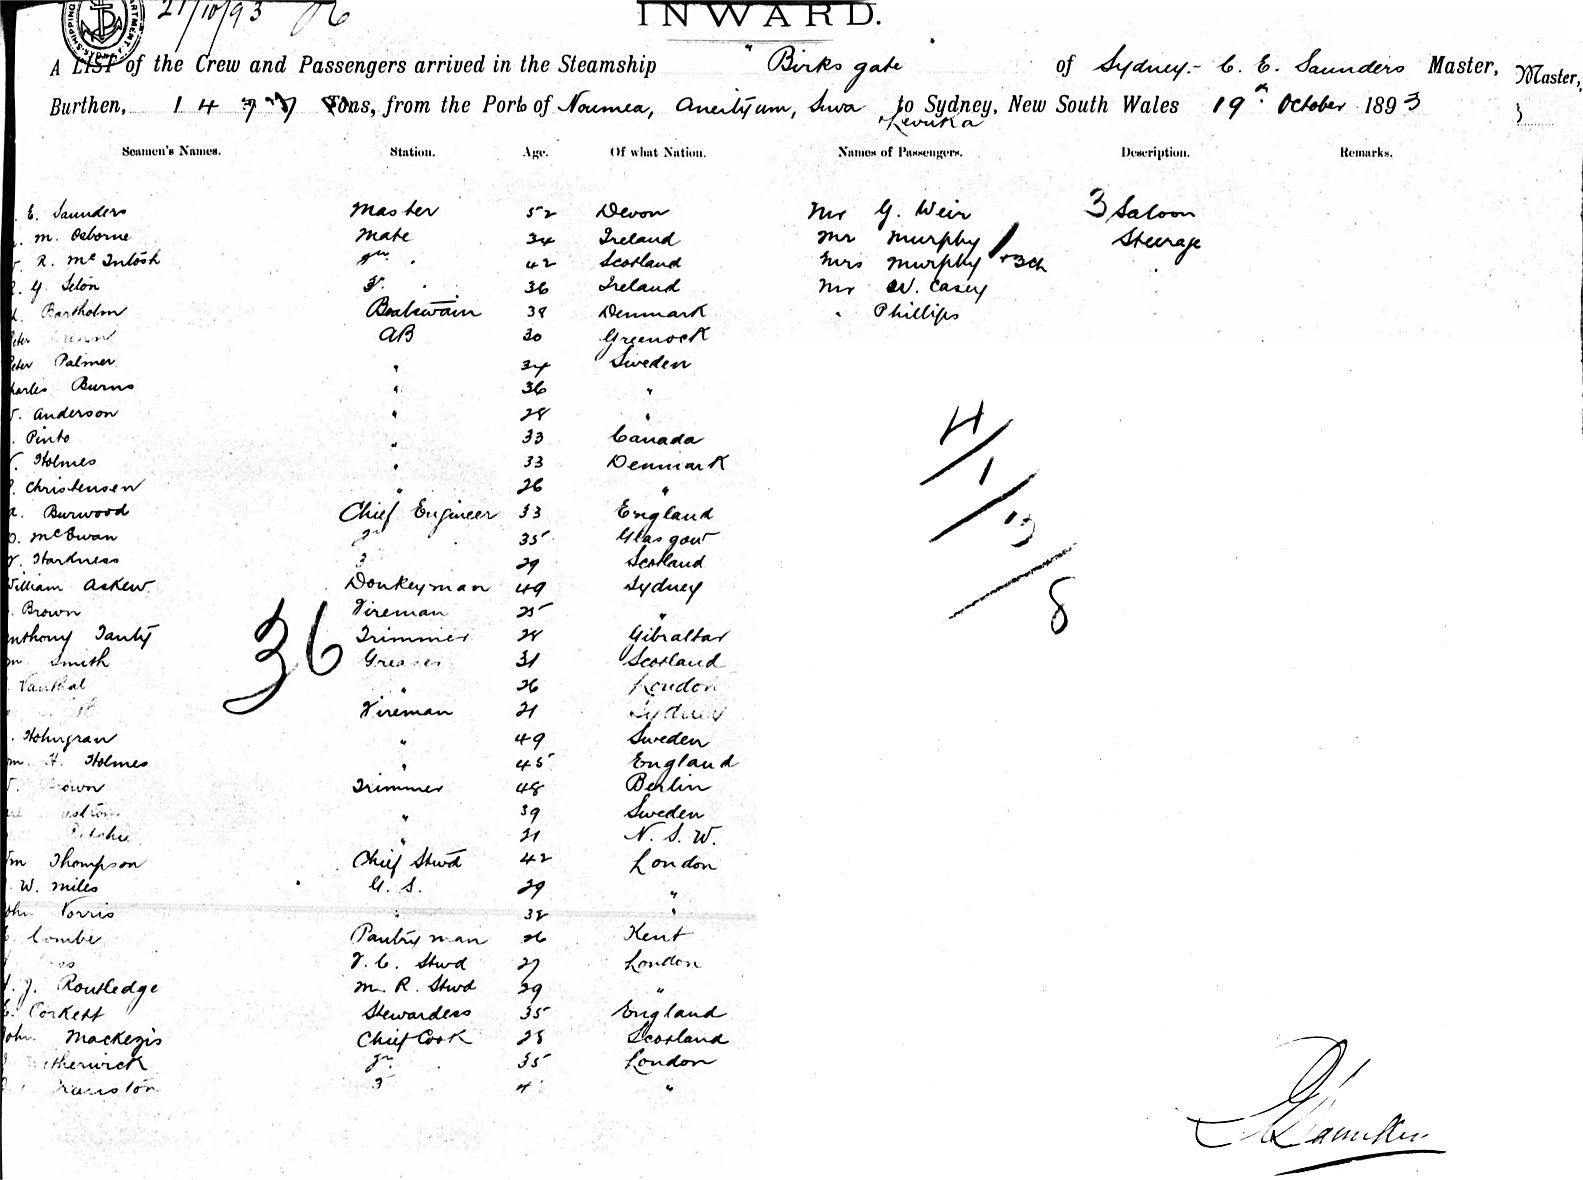 21/10/93
INWARD.
A LIST of the Crew and Passengers arrived in the Steamship Birksgate of Sydney.- C. E. Saunders Master, Master,
Burthen, Tons, from the Port of Noumea, Aneityum, Suva to Sydney, New South Wales 19th October 1893
+ Levuka
Seamen's Names. Station. Age. Of what Nation. Names of Passengers. Description. Remarks.
E. Saunders Master 52 Devon Mr G. Weir 3 Saloon
M. Osborne Mate 34 Ireland Mr Murphy Steerage
R. McIntosh 2nd 42 Scotland Mrs Murphy + 3 ch
3rd 36 Ireland Mr W. Casey
Bartholm Boatswain 38 Denmark " Phillips
AB 30 Greenock
Palmer " 34 Sweden
Burns " 36 "
Anderson " 28 "
Pinto " 33 Canada
Holmes " 33 Denmark
Christensen " 26 "
Burwood Chief Engineer 33 England
McEwan 2 35 Glasgow
Harkness 3 29 Scotland
William Askew Donkeyman 49 Sydney
Brown Fireman 25 "
Trimmer 28 Gibraltar
36
Smith Greaser 31 Scotland
" 26 London
Fireman 21 Sydney
Holmgran " 49 Sweden
H. Holmes " 45 England
Trimmer 48 Berlin
" 39 Sweden
" 21 N. S. W.
Thompson Chief Stwd 42 London
W. Miles G. S. 29 "
Norris " 38 "
Combe Pantryman 26 Kent
F. C. Stwd 27 London
J. Routledge M. R. Stwd 29 "
Corkett Stewardess 35 England
Mackezis Chief Cook 28 Scotland
2nd 35 London
3 "
4/1/13/8